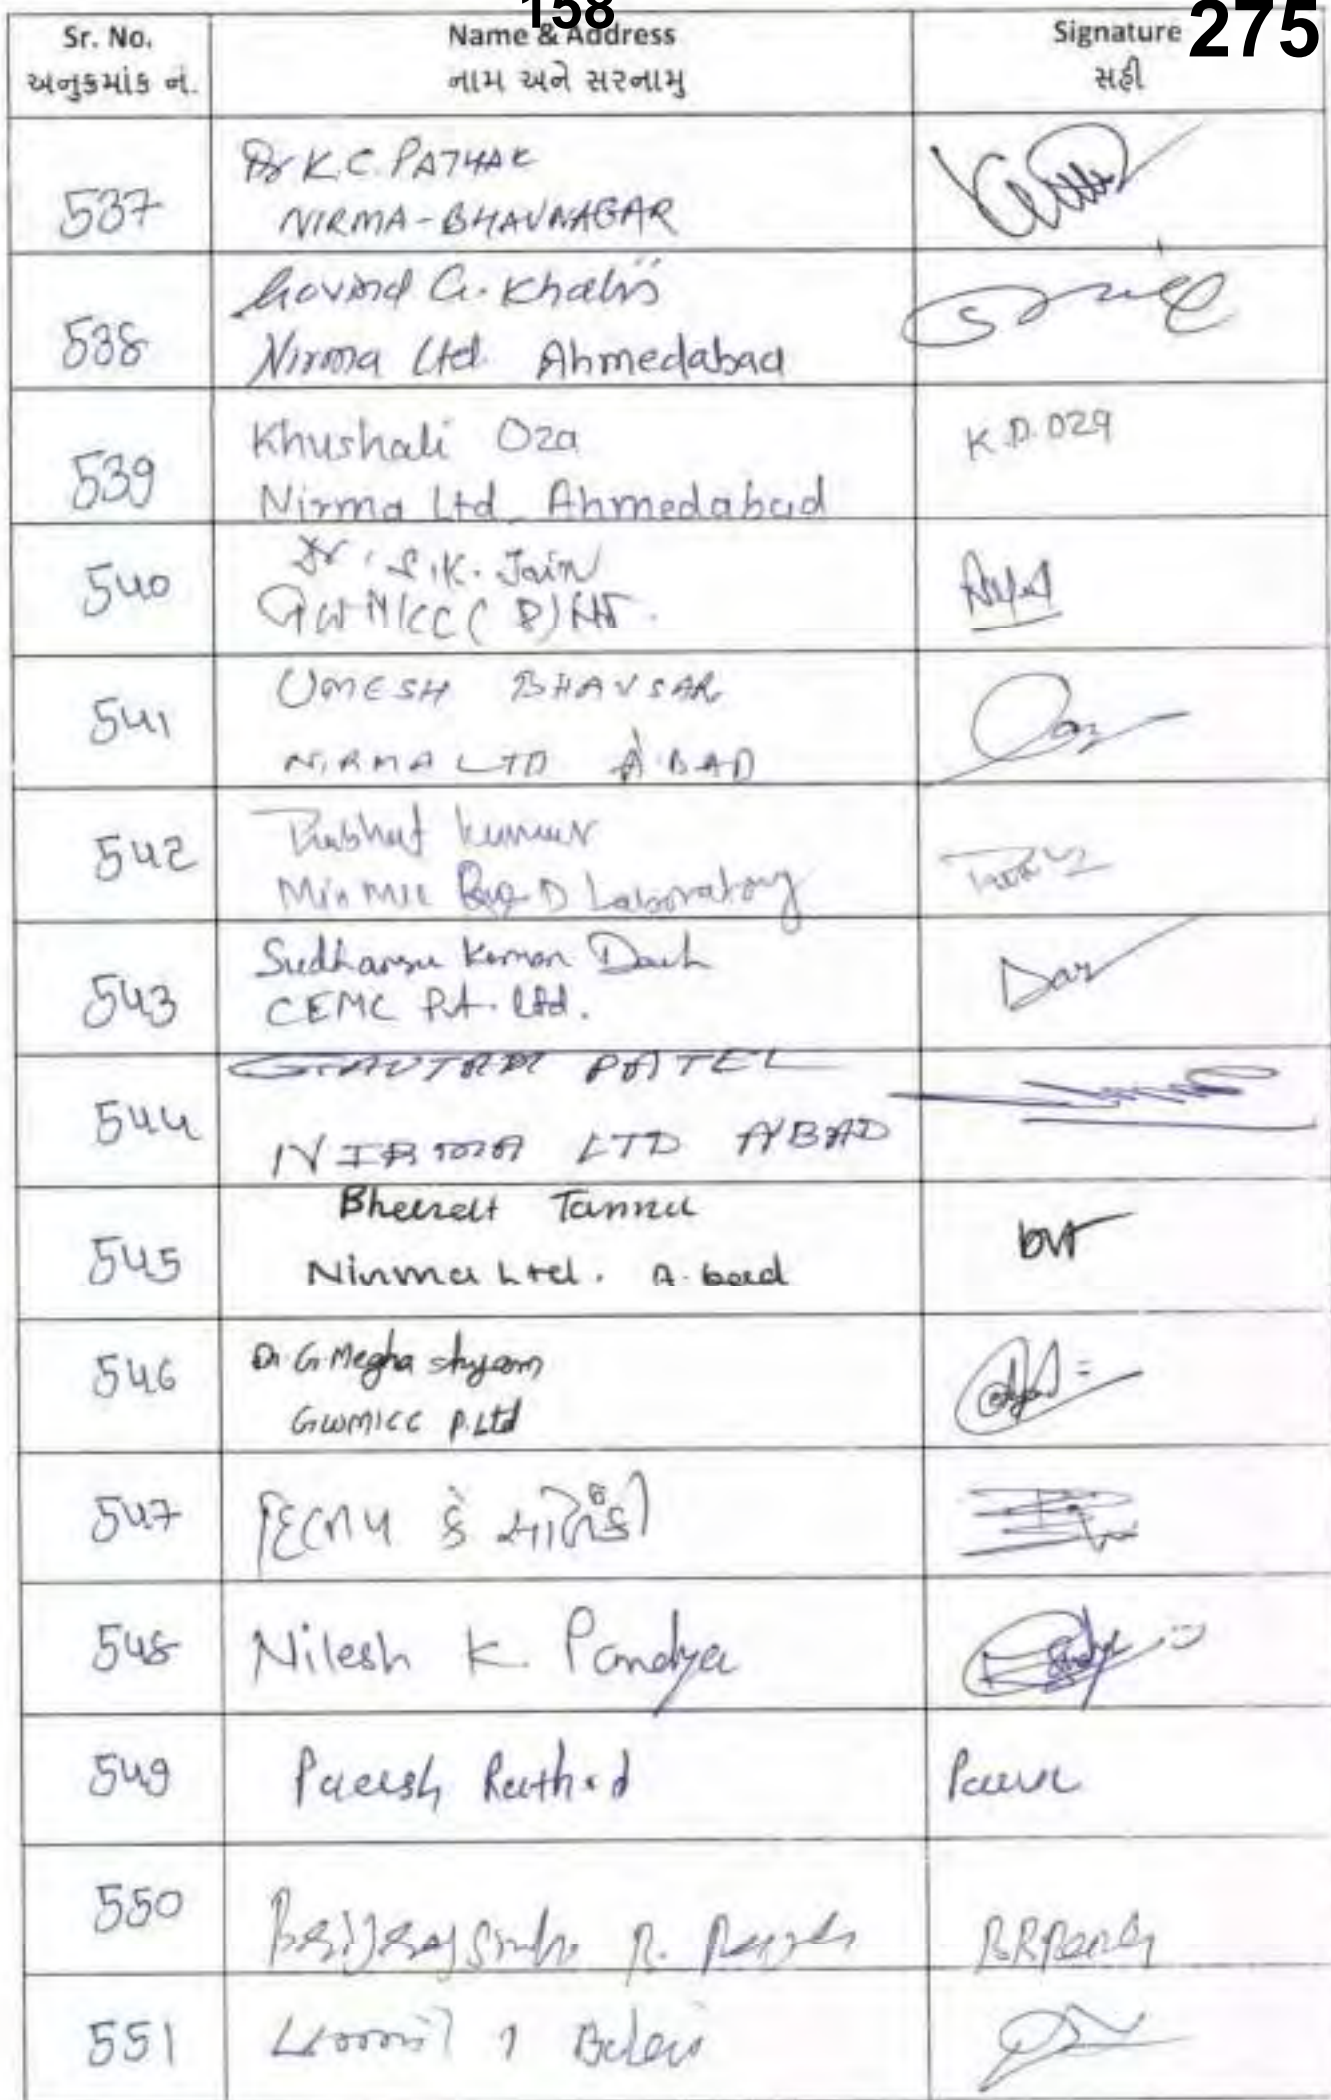 158
275
Sr. No.
અનુક્રમાંક નં.
Name & Address
નામ અને સરનામુ
Signature
સહી
537
Dr K.C. PATHAK
NIRMA-BHAVNAGAR
538
Govind G.
Nirma Ltd. Ahmedabad
539
Khushali Oza
Nirma Ltd Ahmedabad
K.D.OZA
540
Dr. S.K. Jain
GWMICC (P) Ltd.
541
UMESH BHAVSAR
NIRMA LTD A'BAD
542
Prabhat Kumar
Min Mec R & D Laboratory
543
Sudhansu Kumar Dash
CEMC Pvt. Ltd.
Das
544
GAUTAM PATEL
NIRMA LTD A'BAD
545
Bharat Tanna
Nirma Ltd. A.bad
546
Dr. G. Megha shyam
GWMICC P. Ltd
547
દિલીપ કે સોલંકી
548
Nilesh K. Pandya
549
Paresh Rathod
550
R.
551